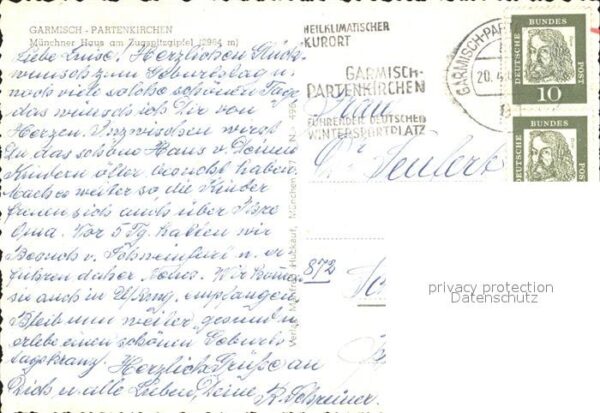 GARMISCH - PARTENKIRCHEN
Münchner Haus am Zugspitzgipfel (2964 m)
Liebe Luise! Herzlichen Glück-
wunsch zum Geburtstag u.
noch viele solche schönen Tage
das wünsch ich Dir von
Herzen. Inzwischen wirst
Du das schöne Haus v. Deinen
Kindern öfter besucht haben.
Mache weiter so die Kinder
freuen sich auch über Ihre
Oma. Vor 5 Tg. hatten wir
Besuch v.
daher Wir
sie auch in empfangen.
Bleib nun weiter gesund u.
erlebe einen schönen Geburts-
tagskranz. Herzlich Grüße an
Dich u. alle Lieben, Deine R. Schreiner.
Verlag
München 27
Nr.
HEILKLIMATISCHER
KURORT
GARMISCH-
PARTENKIRCHEN
FÜHRENDER DEUTSCHER
WINTERSPORTPLATZ
GARMISCH-PAR
20.4.
DEUTSCHE BUNDES POST
10
DEUTSCHE BUNDES POST
Frau
872
privacy protection
Datenschutz